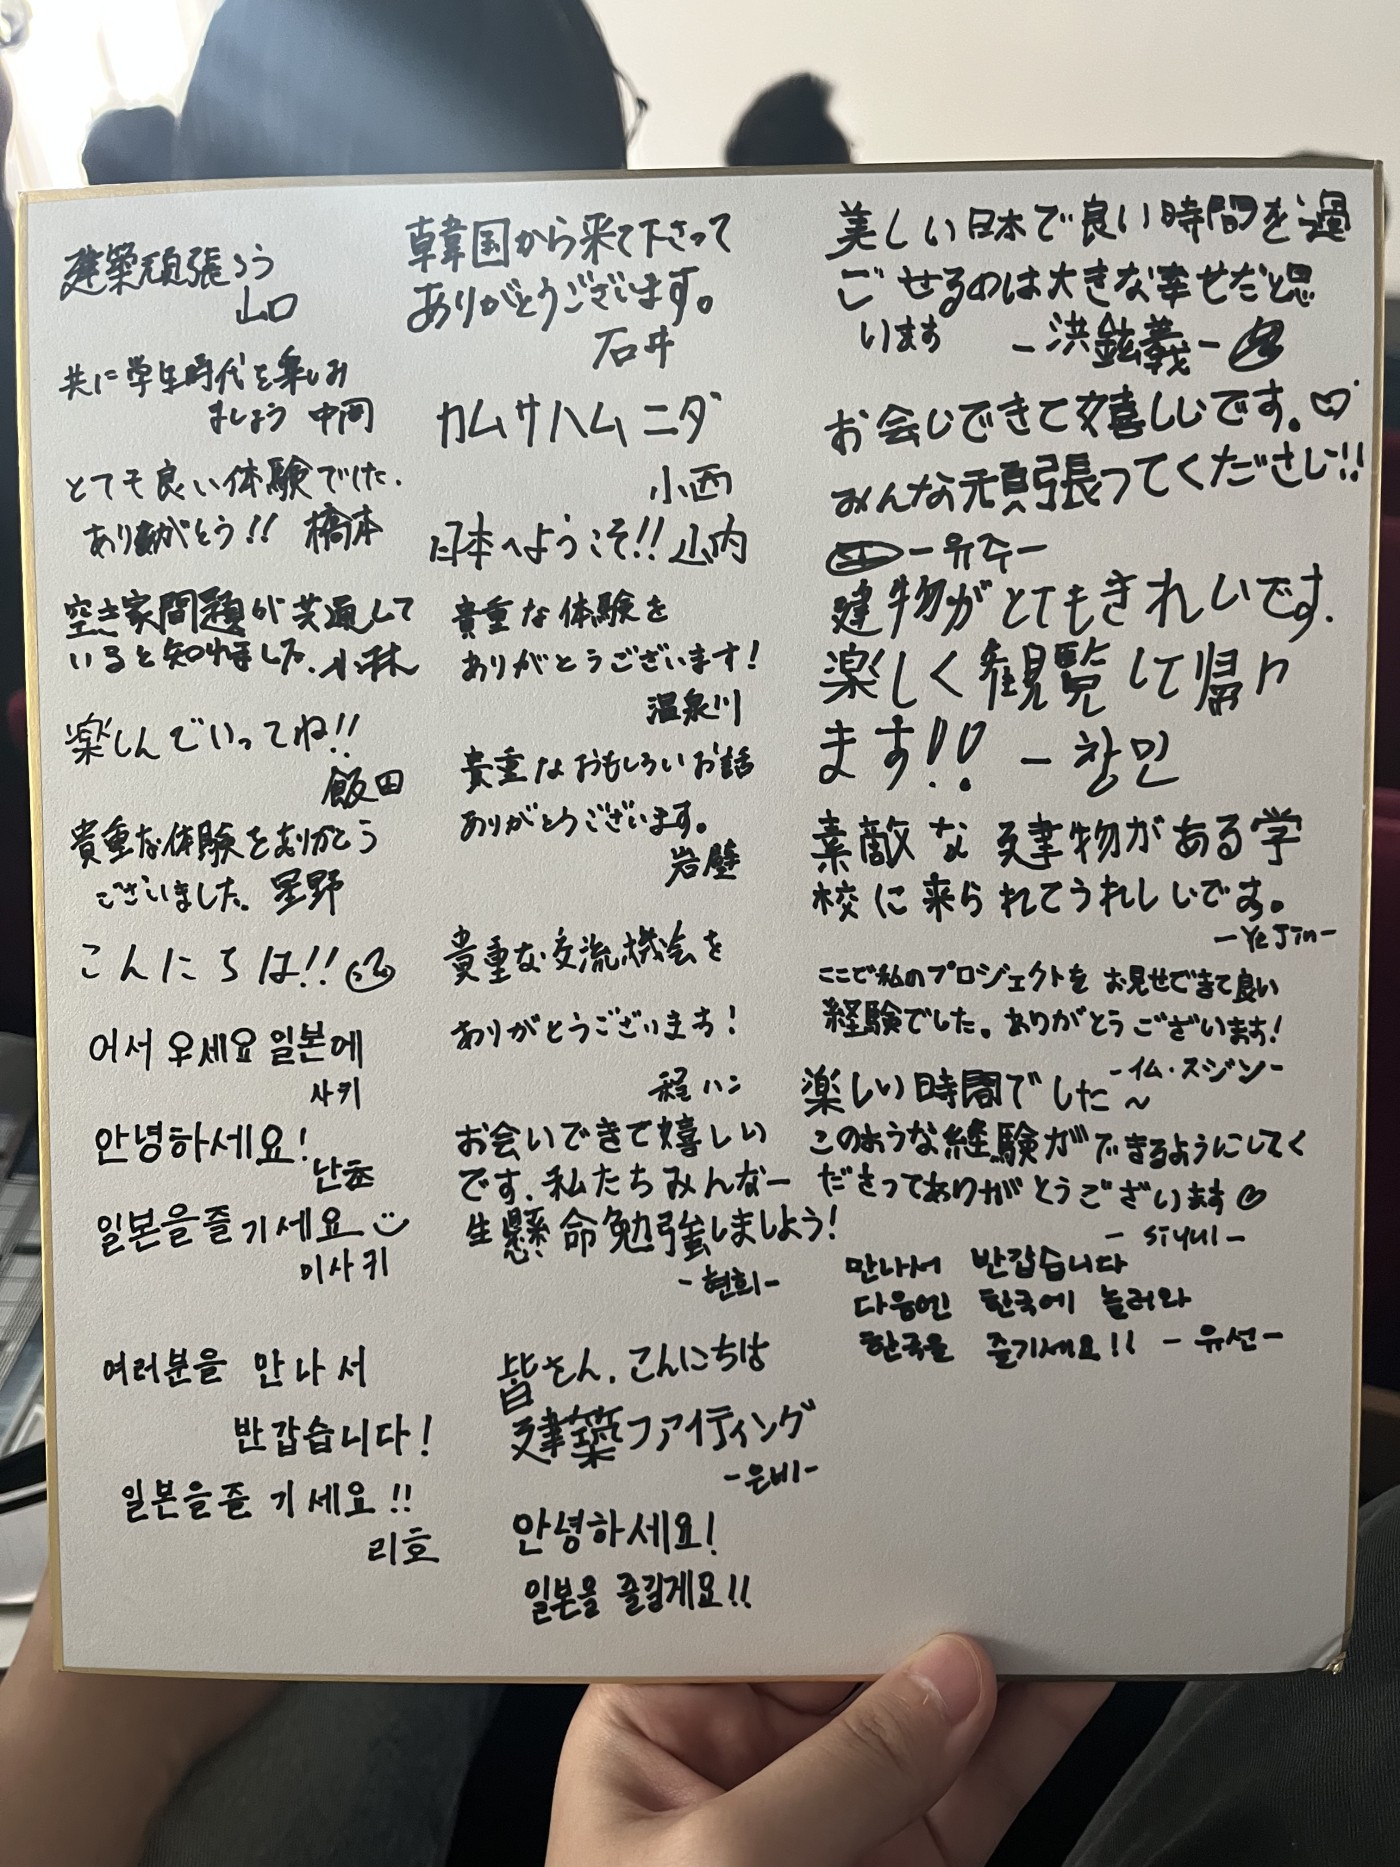 建築頑張ろう
山口
共に学生時代を楽しみ
ましょう 中岡
とても良い体験でした.
ありがとう!! 橋本
空き家問題が共通して
いると知れました. 小林
楽しんでいってね!!
飯田
貴重な体験をありがとう
ございました。星野
こんにちは!!
어서 우세요 일본에
사키
안녕하세요!
난초
일본을 즐기세요
미사키
여러분을 만나서
반갑습니다!
일본을 즐기세요!!
리호
韓国から来て下さって
ありがとうございます。
石井
カムサハムニダ
小西
日本へようこそ!! 山内
貴重な体験を
ありがとうございます!
温泉川
貴重なおもしろいお話
ありがとうございます。
岩壁
貴重な交流機会を
ありがとうございます!
程ハン
お会いできて嬉しい
です.私たちみんな一
生懸命勉強しましよう!
-현희-
皆さん.こんにちは
建築ファイティング
-은비-
안녕하세요!
일본을 즐길게요!!
美しい日本で良い時間を過
ごせるのは大きな幸せだと思
います -洪鉉義-
お会いできて嬉しいです。♡
みんな頑張ってください!!
-유주-
建物がとてもきれいです.
楽しく観覧して帰り
ます!! -창민
素敵な建物がある学
校に来られてうれしいです。
-YeJin-
ここで私のプロジェクトをお見せできて良い
経験でした。ありがとうございます!
-イム・スジン-
楽しい時間でした~
このような経験ができるようにしてく
ださってありがとうございます♡
- siyul -
만나서 반갑습니다
다음엔 한국에 놀러와
한국을 즐기세요!! -유선-